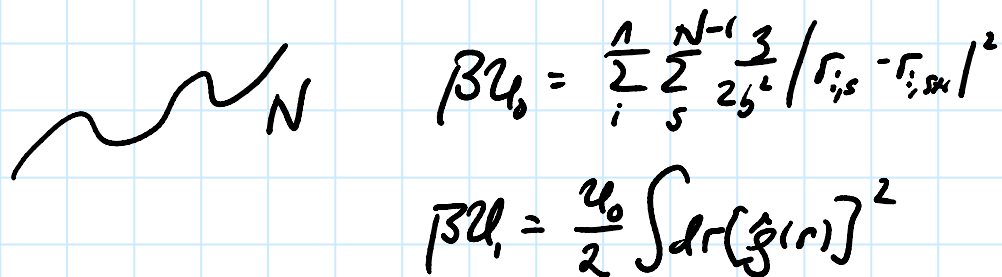 N
βU₀ = Σᵢⁿ Σₛᴺ⁻¹ 3/(2b²) |r_{i,s} - r_{i,s+1}|²
βU₁ = u₀/2 ∫dr[ρ̂(r)]²